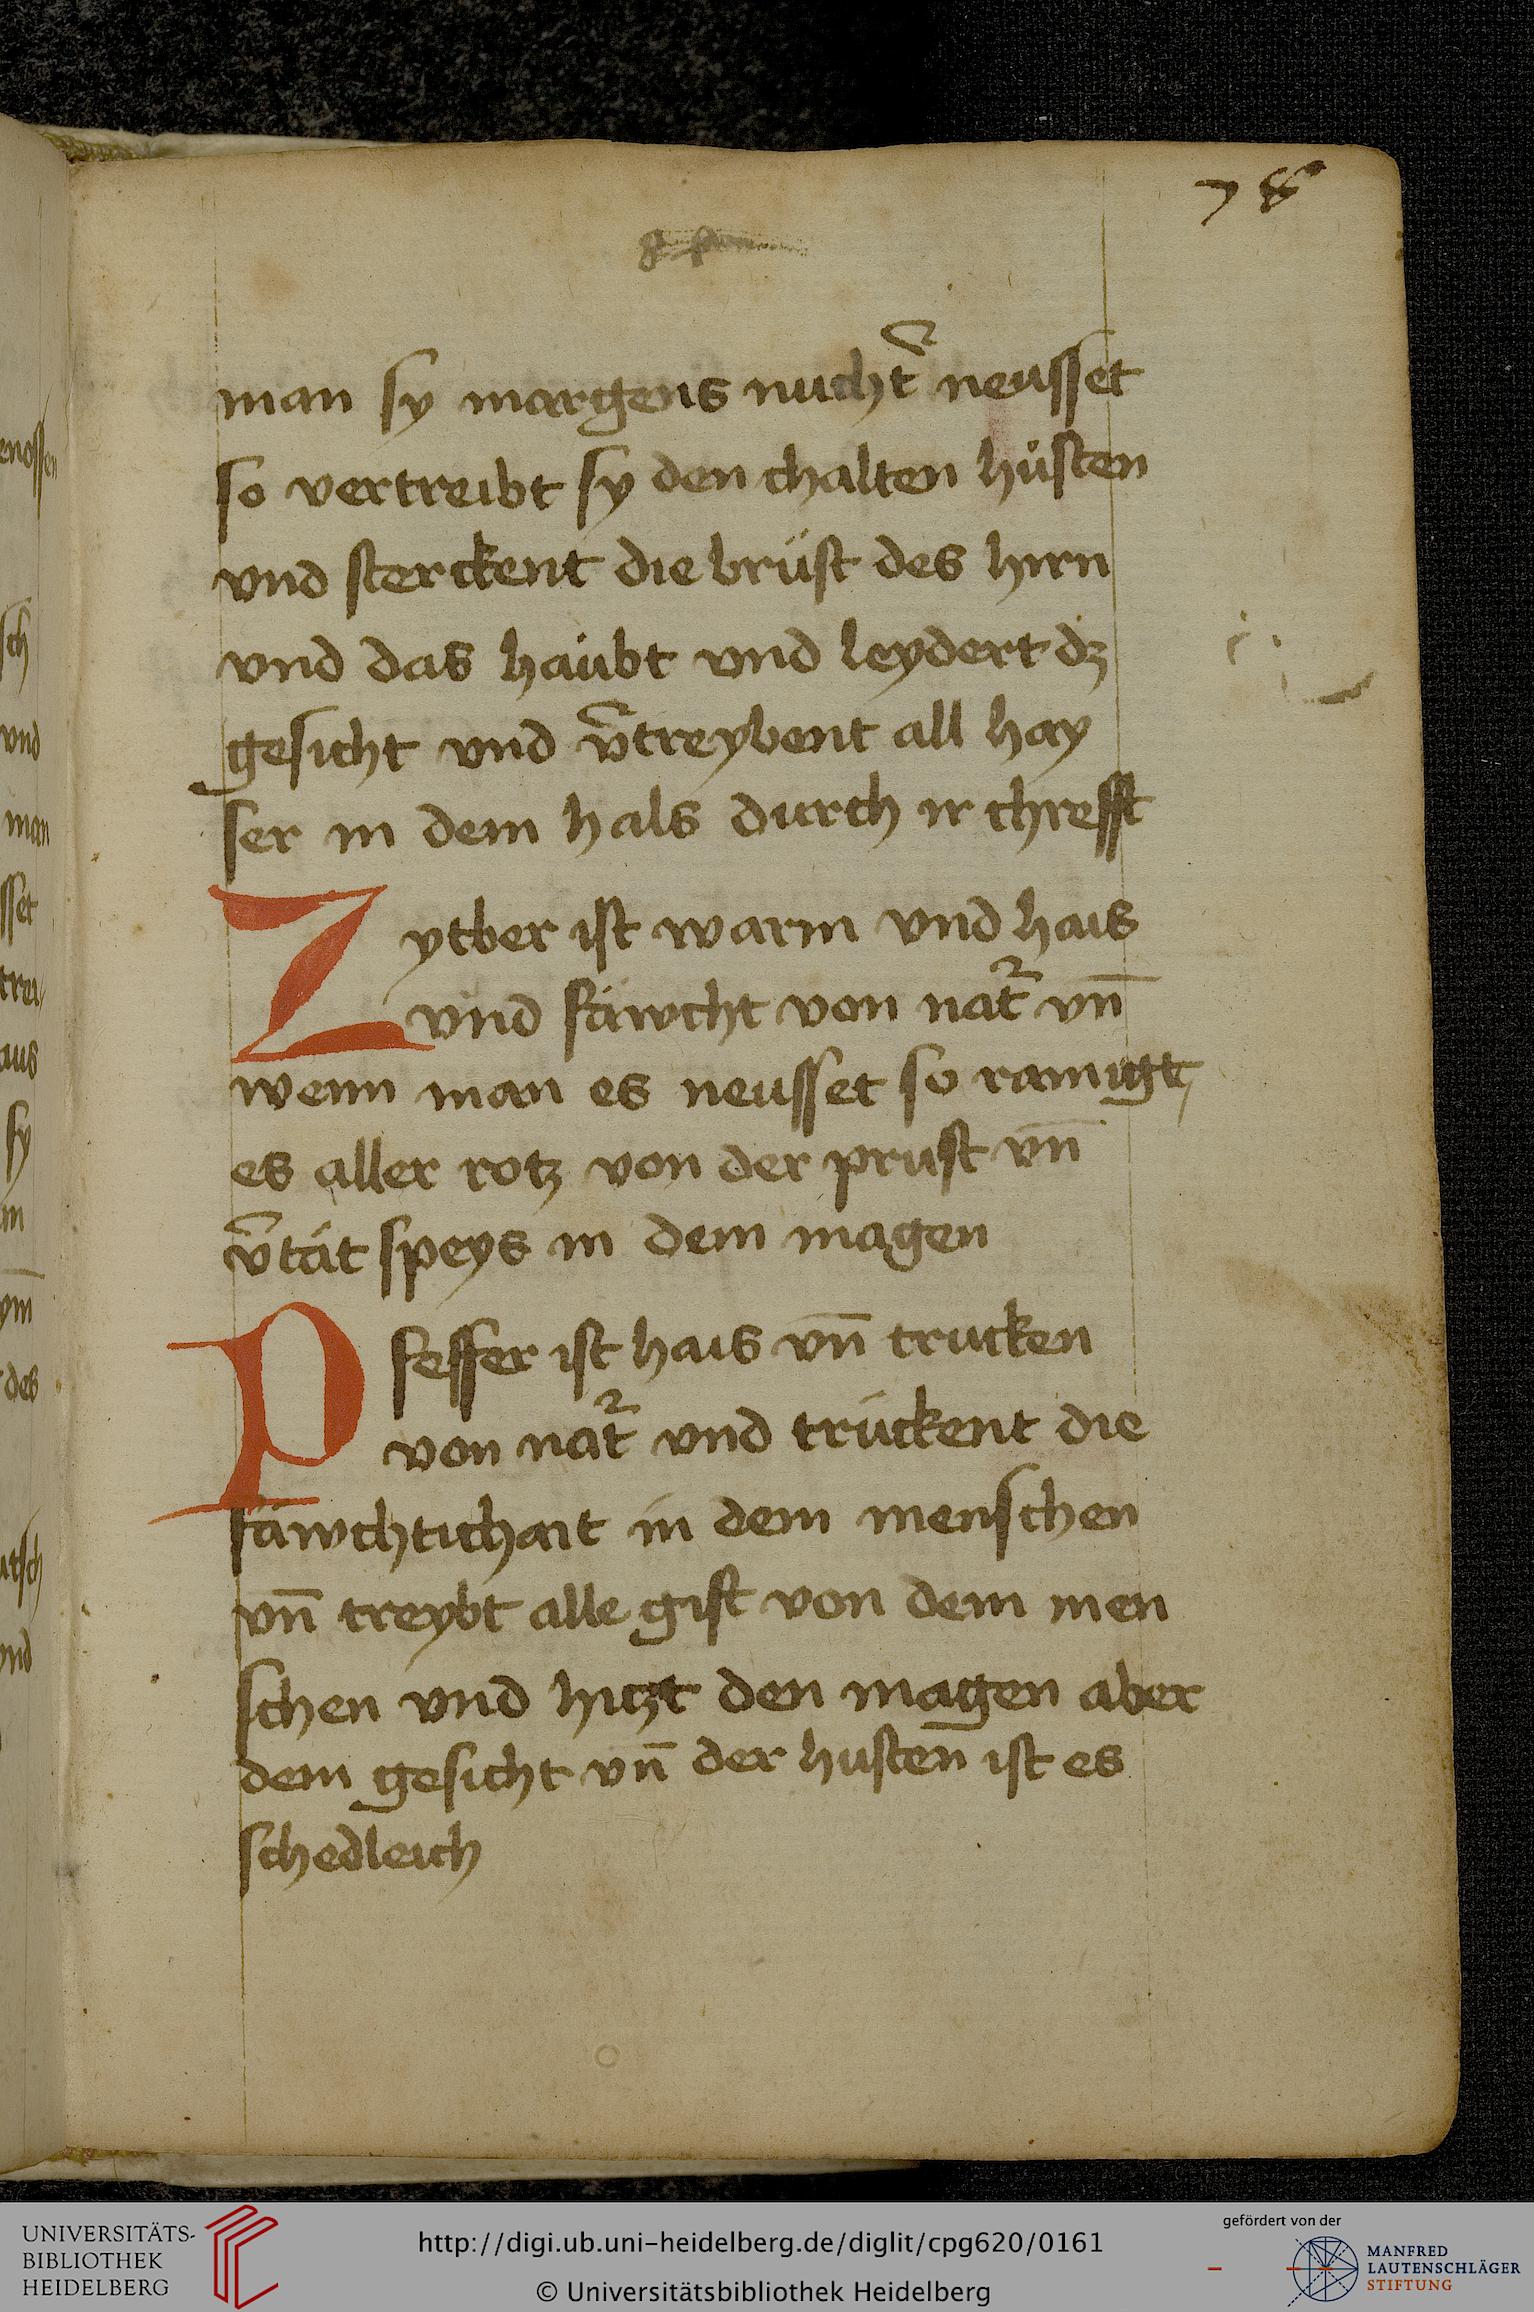 78
man sy margens nucht̉ neusset
so vertreibt sy den chalten hůsten
vnd sterckent die brüst des hirn
vnd das haubt vnd leydert dz
gesicht vnd v̉treybent all hay
ser in dem hals durch ir chrefft
Zytber ist warm vnd hais
vnd fäwcht von nat̉ vn̄
wenn man es neusset so rainigt
es aller rotz von der prust vn̄
v̉tät speys in dem magen
Pfeffer ist hais vn̄ trucken
von nat̉ vnd trückent die
fäwchtichait in dem menschen
vn̄ treybt alle gift von dem men
schen vnd hitzt den magen aber
dem gesicht vn̄ der husten ist es
schedleich
enossen
sch
vnd
man
sset
trei
aus
sy
in
ym̄
des
utsch
vnd
UNIVERSITÄTS-
BIBLIOTHEK
HEIDELBERG
http://digi.ub.uni-heidelberg.de/diglit/cpg620/0161
© Universitätsbibliothek Heidelberg
gefördert von der
MANFRED
LAUTENSCHLÄGER
STIFTUNG